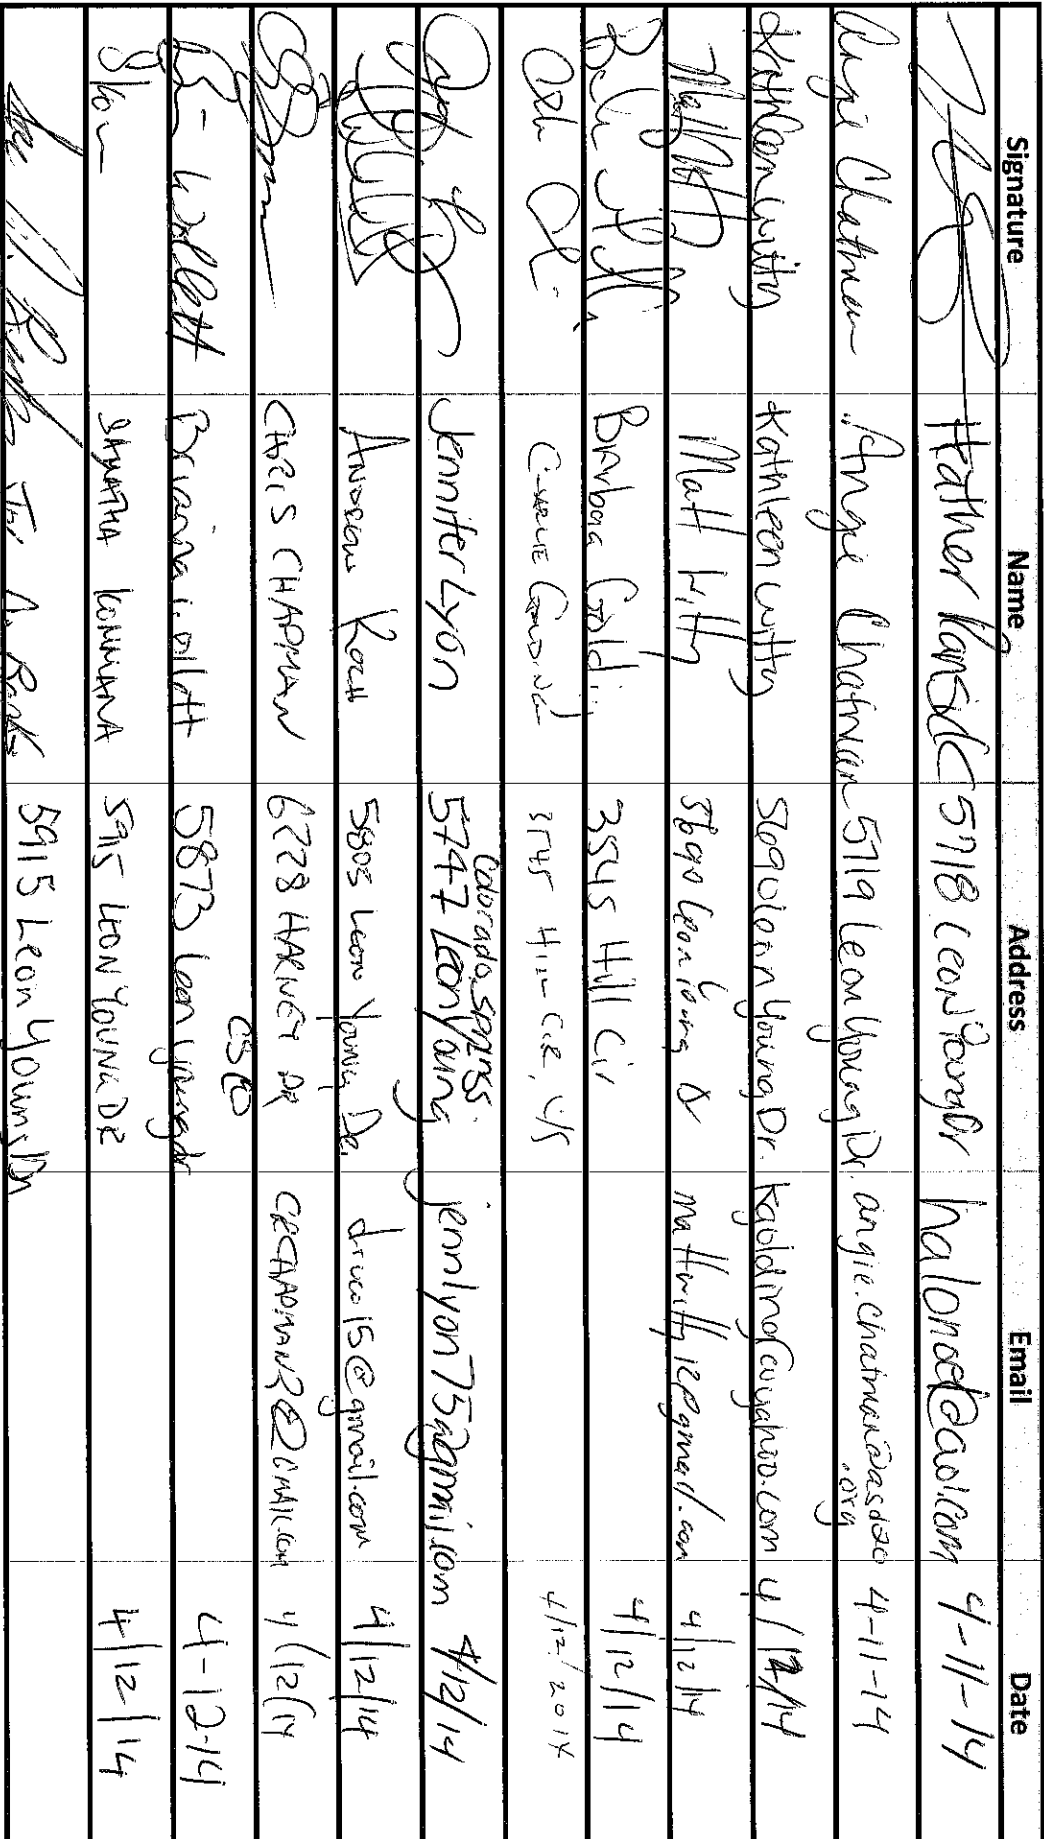 Signature Name Address Email Date
Heather 5718 Leon Young Dr halond@aol.com 4-11-14
Angie Chatman Angie Chatman 5719 Leon Young Dr. angie.chatman@asd20
.org 4-11-14
Kathleen Witty Kathleen Witty 5690 Leon Young Dr. 4/12/14
Matt Witty 5690 Leon Young Dr mattwitty12@gmail.com 4/12/14
Barbara Golding 3545 Hill Cir 4/12/14
Charlie Golding 3545 Hill Cir, C/S 4/12/2014
Colorado Springs
Jennifer Lyon 5747 Leon Young jennlyon75@gmail.com 4/12/14
Andrew Koch 5805 Leon Young Dr. 4/12/14
CHRIS CHAPMAN 6228 HARNEY DR CRCHAPMAN3@GMAIL.COM 4/12/14
Brianna Willett 5873 Leon Young dr 4-12-14
KOMMANA 5915 LEON YOUNG DR 4/12/14
5915 Leon Young Dr